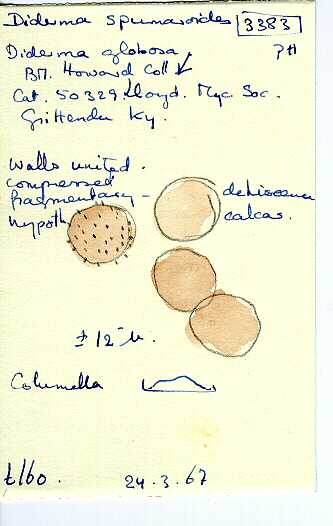 Diderma spumarioides 3383
Diderma globosa. ? H
BM. Howard Coll
Cat. 50329. Lloyd. Myc. Soc.
Ky.
Walls united.
compressed
fragmentary — dehiscence
hypoth calcar.
± 12 µ.
Columella
24.3.67